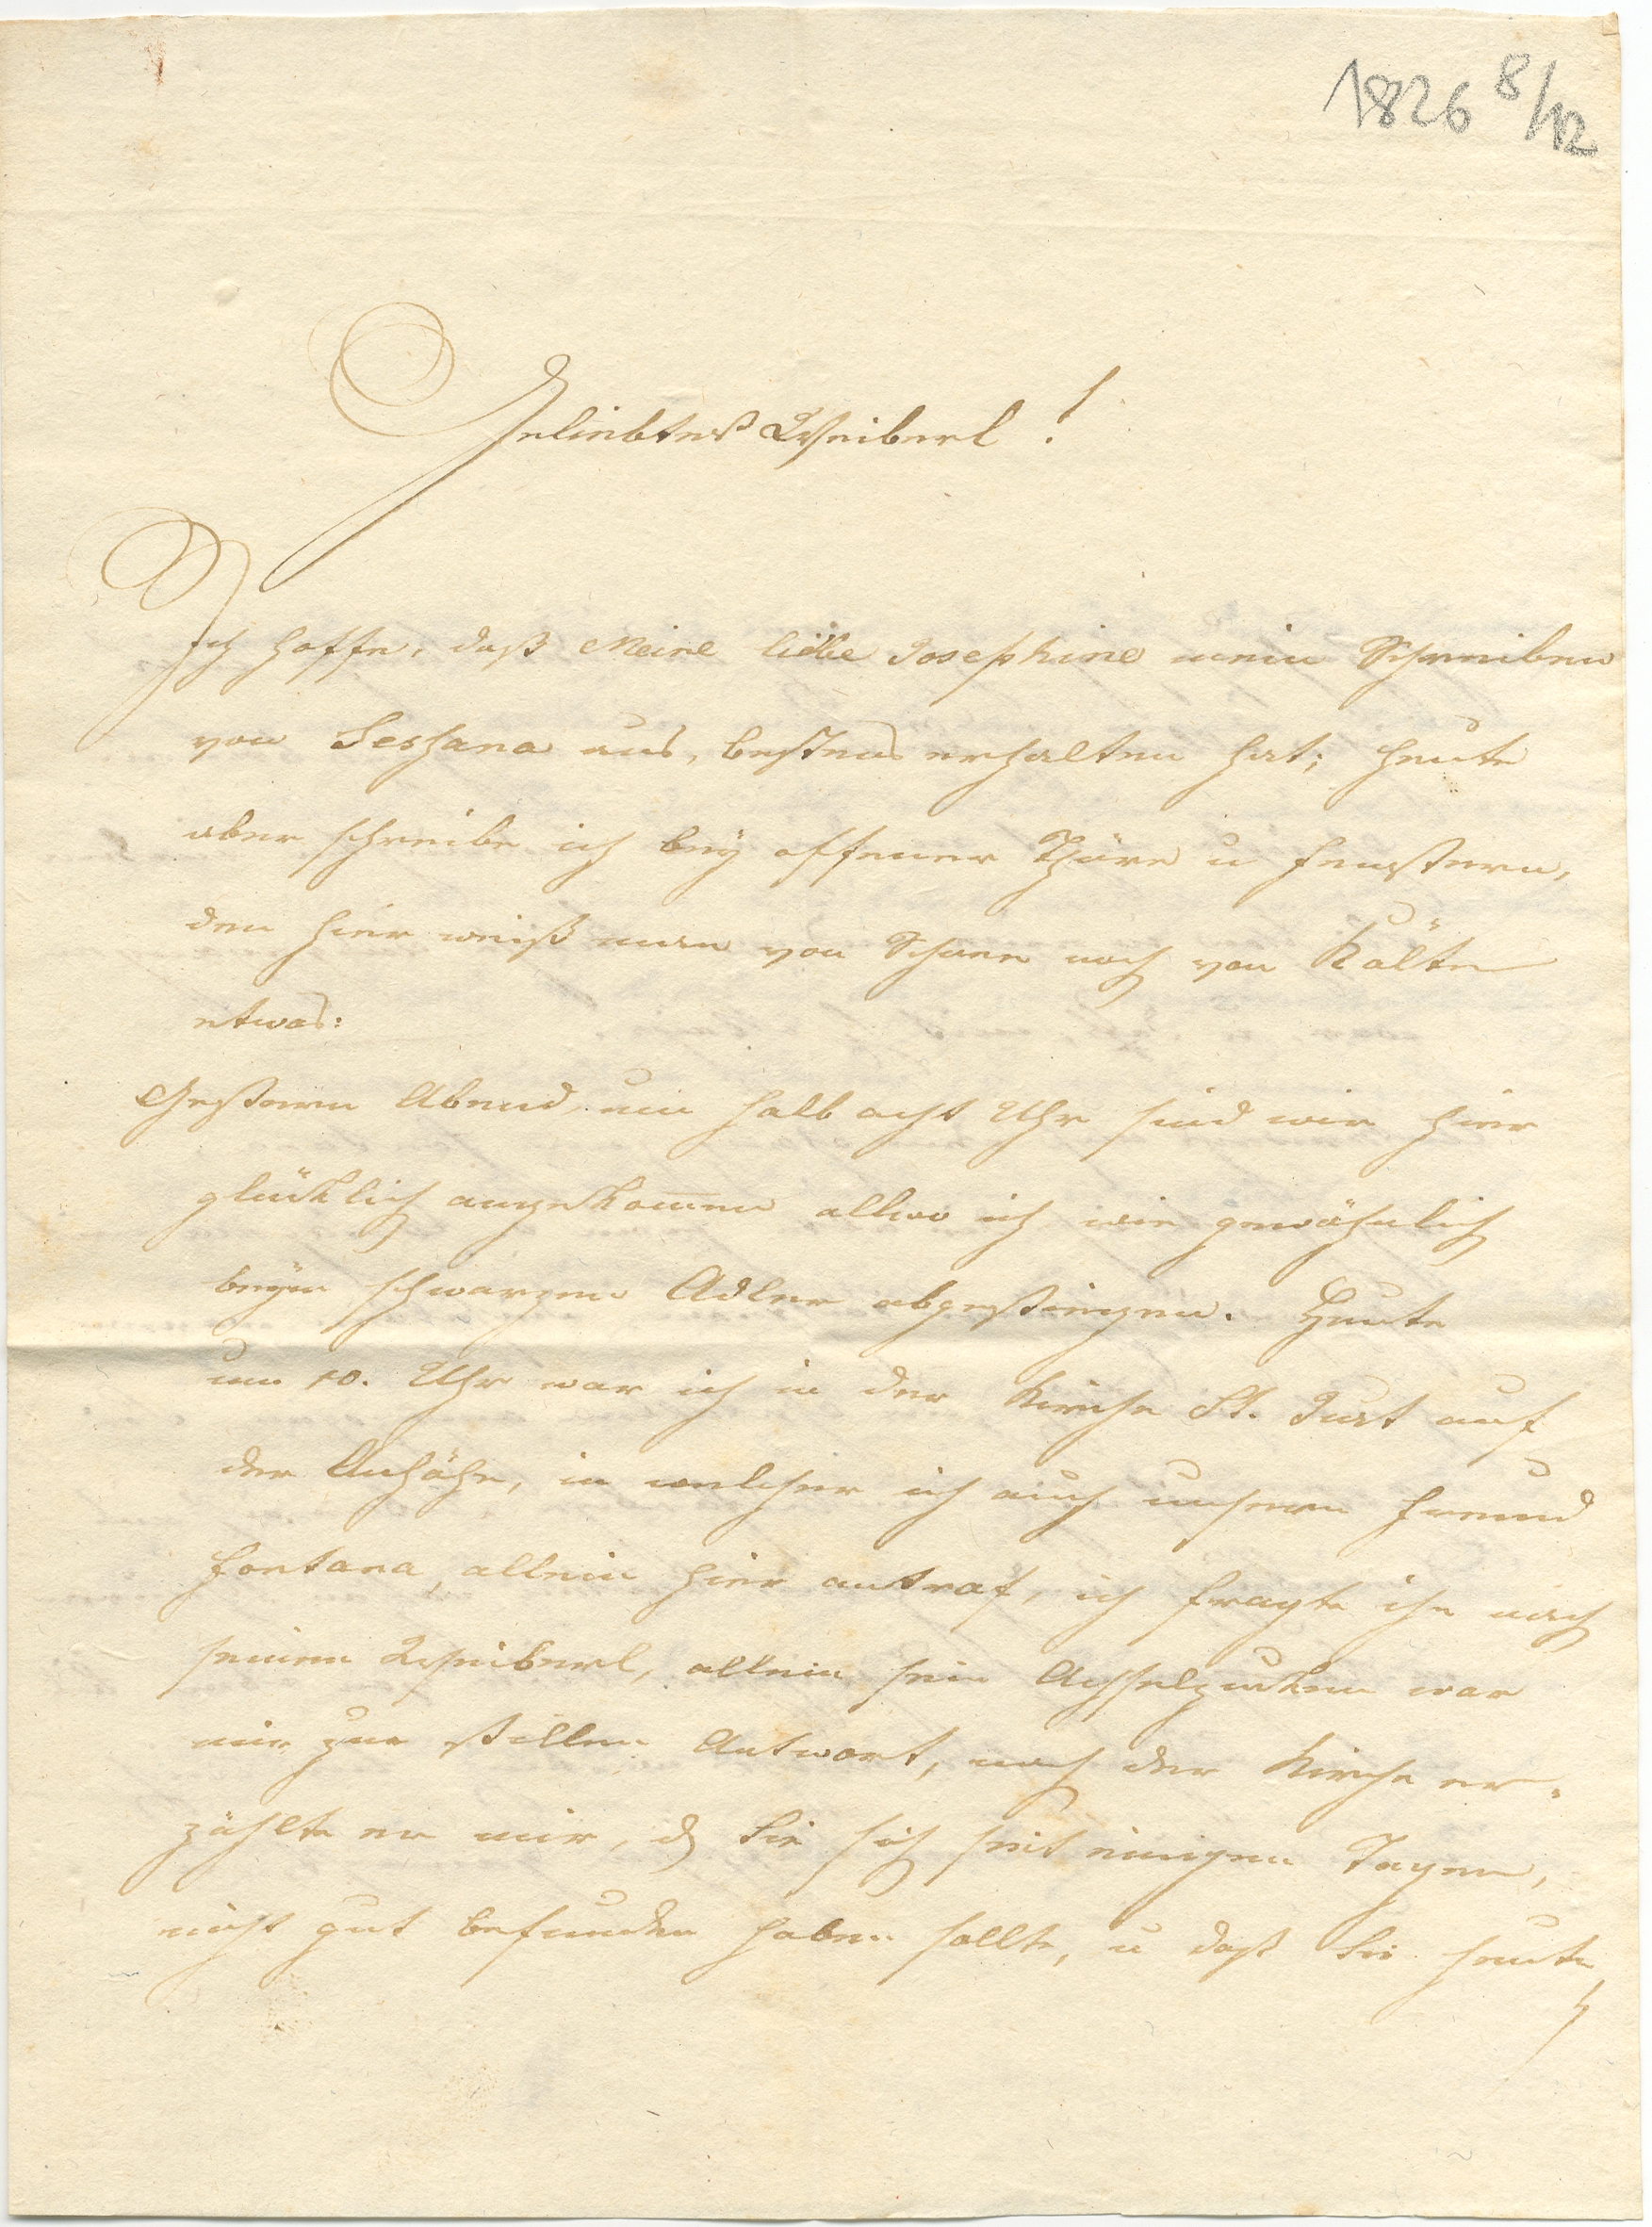 1826 8/12
Geliebtes Weiberl!
Ich hoffe, daß Meine liebe Josephine mein Schreiben
von Seshana aus, bestens erhalten hat; heute
aber schreibe ich beÿ offener Thüre u Fenstern,
den hier weiß man von Schnee noch von Kälte
etwas:
Gestern Abend, um halb acht Uhr sind wir hier
glücklich angekommen allwo ich wie gewöhnlich
beÿm schwarzen Adler abgestiegen. Heute
um 10. Uhr war ich in der Kirche St. Just auf
der Anhöhe, in welcher ich auch unsern Freund
Fontana, allein hier antraf, ich fragte ihn nach
seinem Weiberl, allein sein Achselzucken war
mir zur stillen Antwort, nach der Kirche er-
zählte er mir, d Sie sich seit einigen Tagen,
nicht gut befunden haben sollte, u daß Sie heute